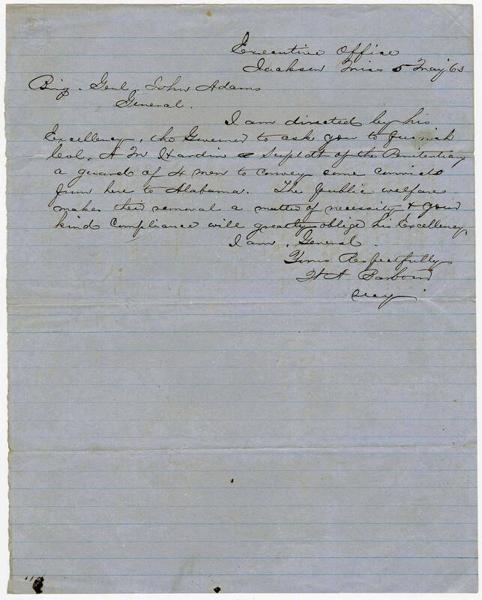 Executive Office
Jackson Miss 5 May 63
Brig. Genl. John Adams
General.
I am directed by his
Excellency, the Governor to ask you to furnish
Col. A M Hardin Supt of the Penitentiary
a guard of 4 men to convey some convicts
from here to Alabama. The public welfare
makes their removal a matter of necessity & your
kind compliance will greatly oblige his Excellency,
I am, General.
Yours Respectfully